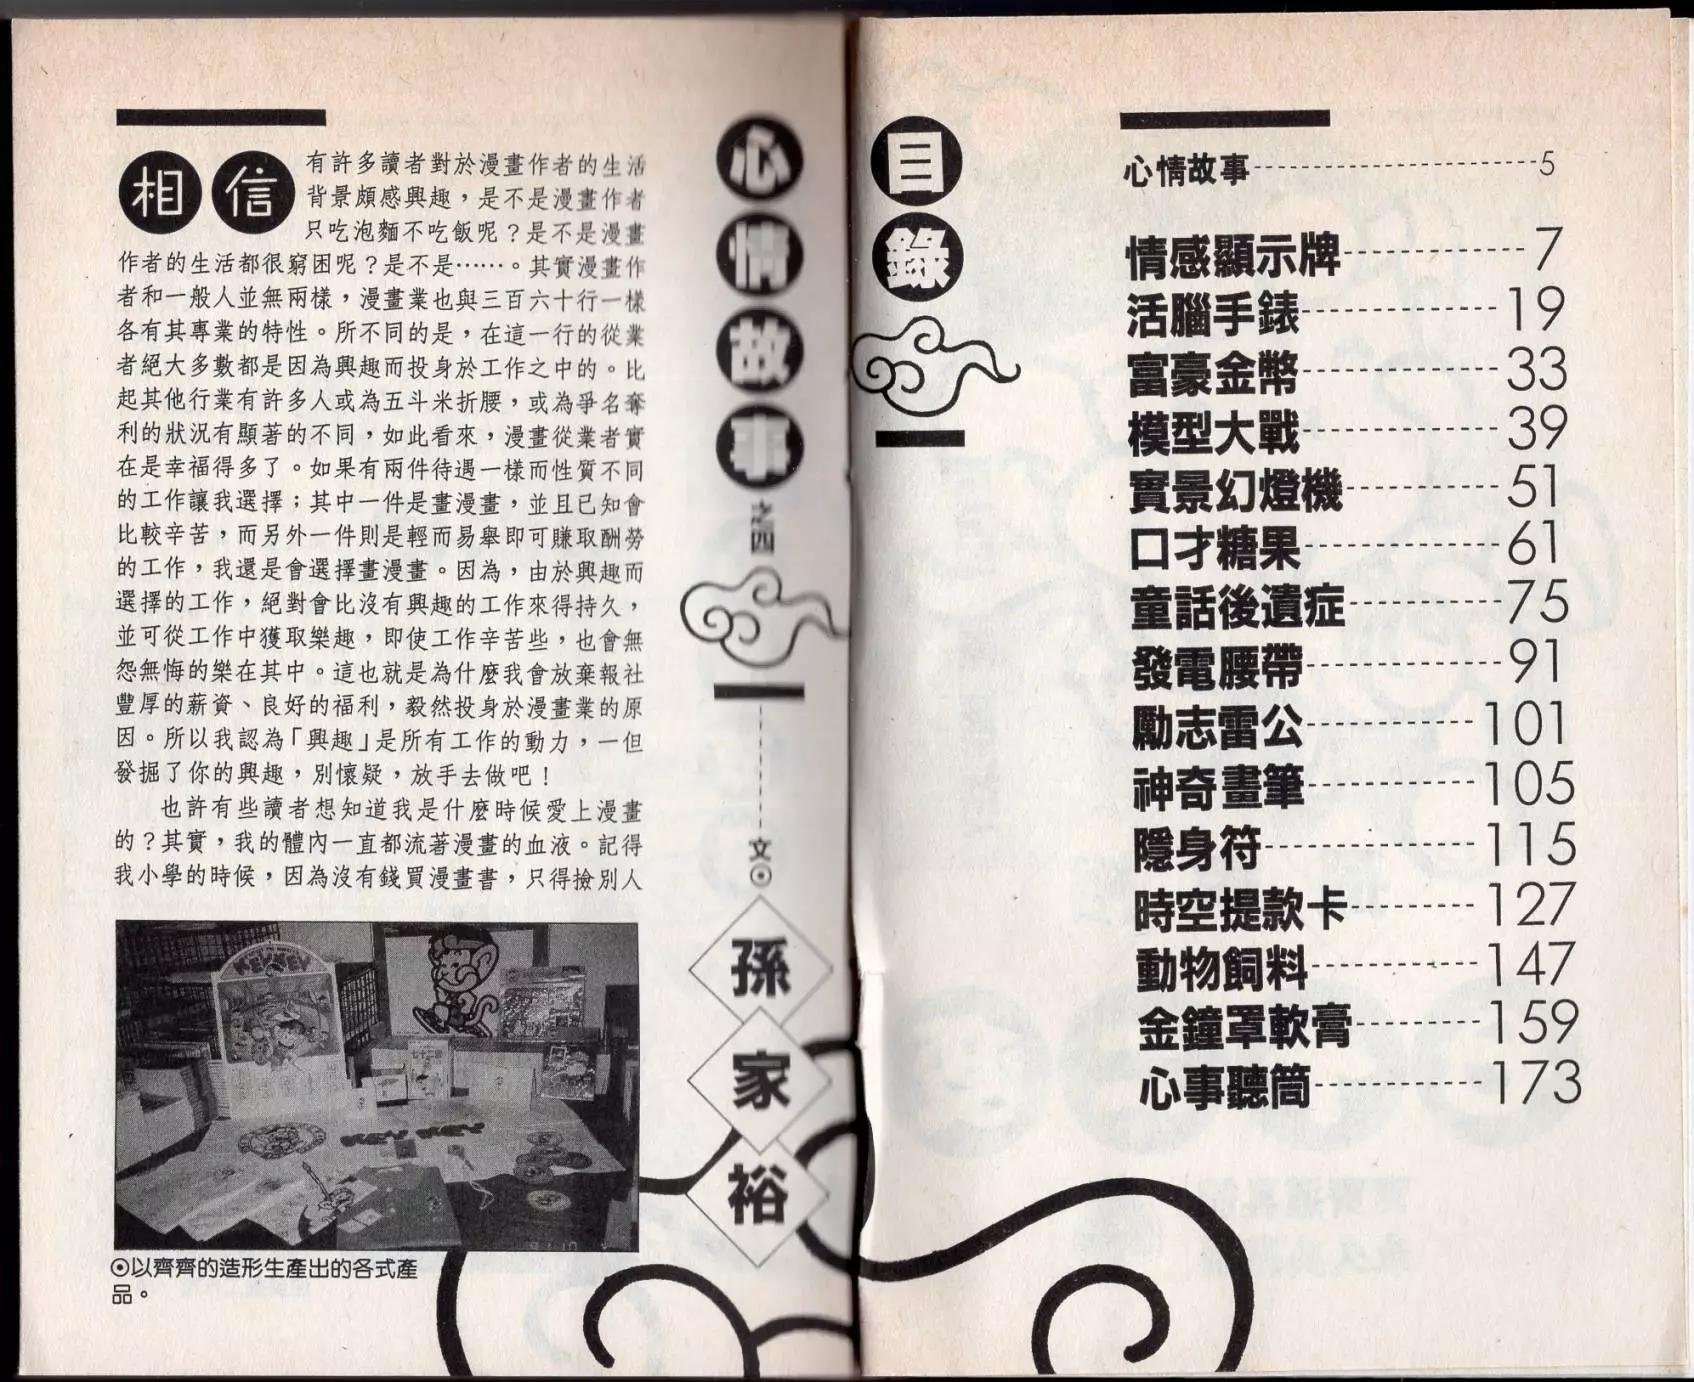 相信
有許多讀者對於漫畫作者的生活
背景頗感興趣，是不是漫畫作者
只吃泡麵不吃飯呢？是不是漫畫
作者的生活都很窮困呢？是不是……。其實漫畫作
者和一般人並無兩樣，漫畫業也與三百六十行一樣
各有其專業的特性。所不同的是，在這一行的從業
者絕大多數都是因為興趣而投身於工作之中的。比
起其他行業有許多人或為五斗米折腰，或為爭名奪
利的狀況有顯著的不同，如此看來，漫畫從業者實
在是幸福得多了。如果有兩件待遇一樣而性質不同
的工作讓我選擇；其中一件是畫漫畫，並且已知會
比較辛苦，而另外一件則是輕而易舉即可賺取酬勞
的工作，我還是會選擇畫漫畫。因為，由於興趣而
選擇的工作，絕對會比沒有興趣的工作來得持久，
並可從工作中獲取樂趣，即使工作辛苦些，也會無
怨無悔的樂在其中。這也就是為什麼我會放棄報社
豐厚的薪資、良好的福利，毅然投身於漫畫業的原
因。所以我認為「興趣」是所有工作的動力，一但
發掘了你的興趣，別懷疑，放手去做吧！
也許有些讀者想知道我是什麼時候愛上漫畫
的？其實，我的體內一直都流著漫畫的血液。記得
我小學的時候，因為沒有錢買漫畫書，只得撿別人
⊙以齊齊的造形生產出的各式產
品。
心情故事之四
文⊙孫家裕
目錄
心情故事 5
情感顯示牌 7
活腦手錶 19
富豪金幣 33
模型大戰 39
實景幻燈機 51
口才糖果 61
童話後遺症 75
發電腰帶 91
勵志雷公 101
神奇畫筆 105
隱身符 115
時空提款卡 127
動物飼料 147
金鐘罩軟膏 159
心事聽筒 173